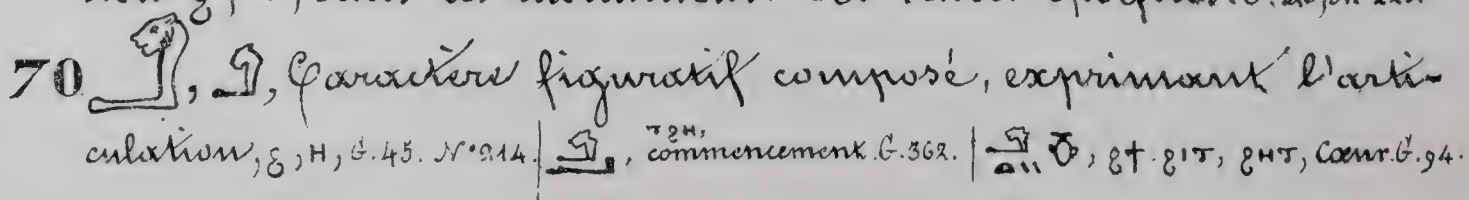 70 , , Caractère figuratif composé, exprimant l'arti-
culation, ϩ, H, G. 45. N° 214. | , ⲧϩⲏ, commencement. G. 362. | , ϩϯ. ϩⲓⲧ, ϩⲏⲧ, Cœur. G. 94.